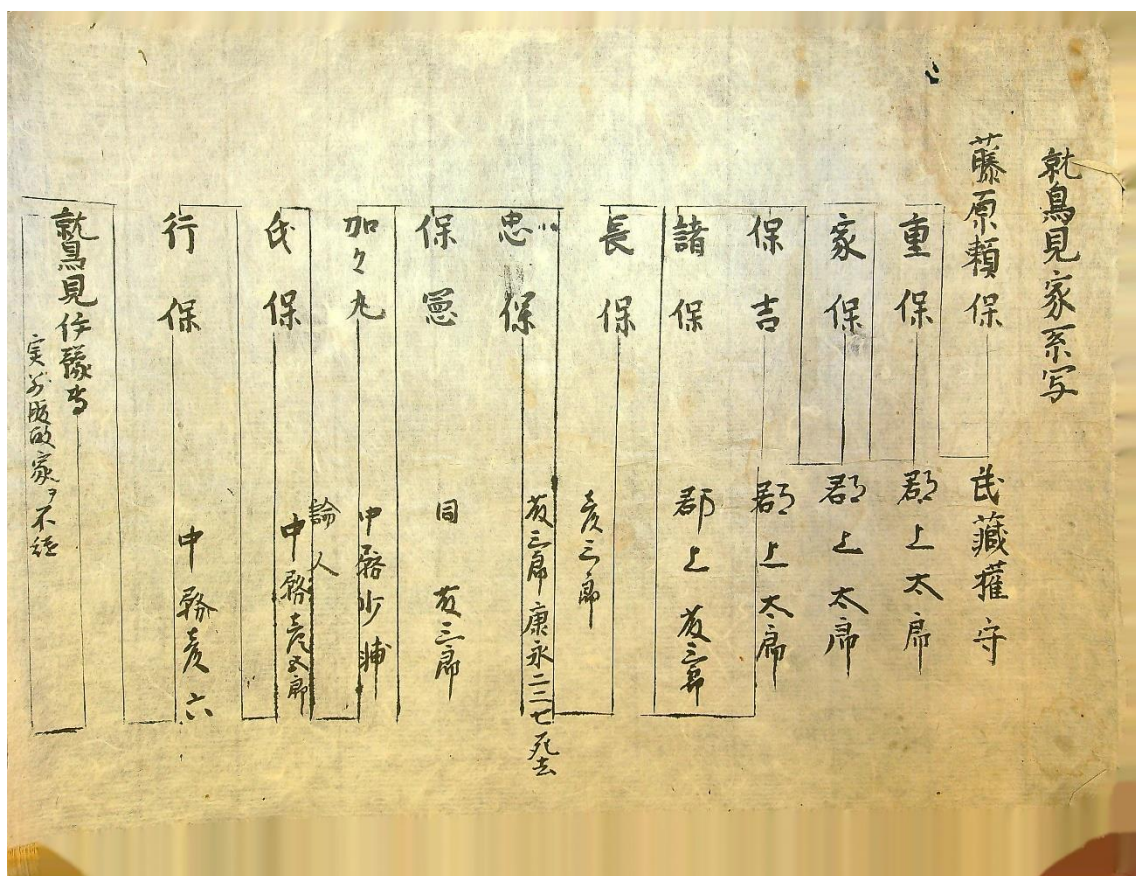 鷲見家系写
藤原頼保 武蔵権守
重保 郡上太郎
家保 郡上太郎
保吉 郡上太郎
諸保 郡上彦三郎
長保 彦三郎
忠保 彦三郎康永二二七死去
保憲 同 彦三郎
加々丸 中務少輔
論人
氏保 中務彦五郎
行保 中務彦六
鷲見伊豫守
家ヲ不